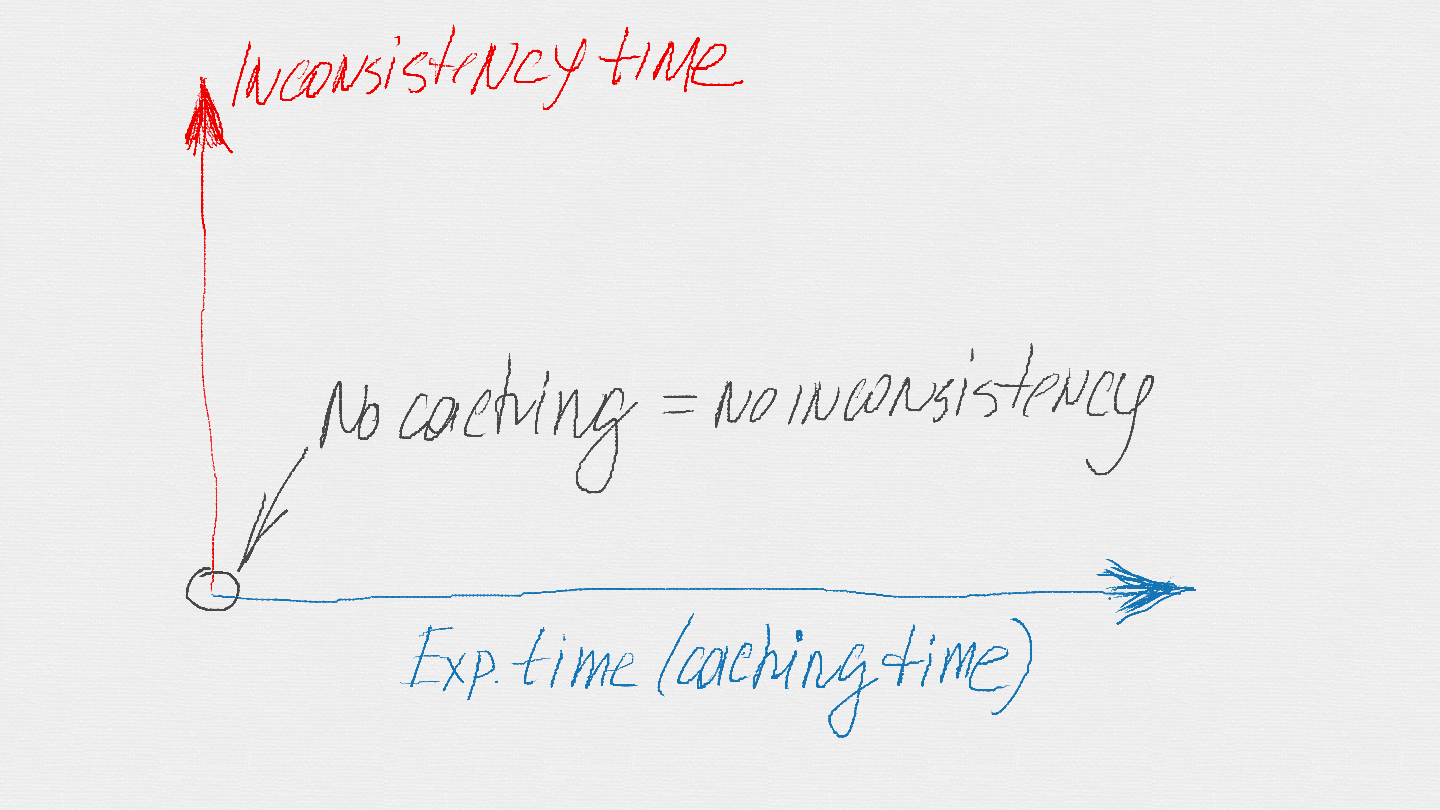 Inconsistency time
No caching = no inconsistency
Exp. time (caching time)